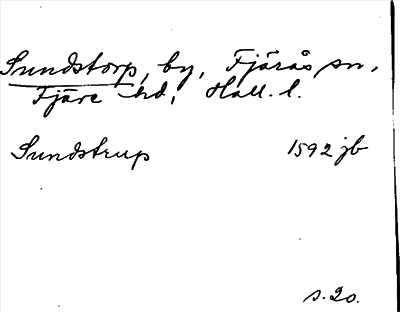 Sundstorp, by, Fjärås sn,
Fjäre hd, Hall. l.
Sundstrup 1592 jb
s. 20.